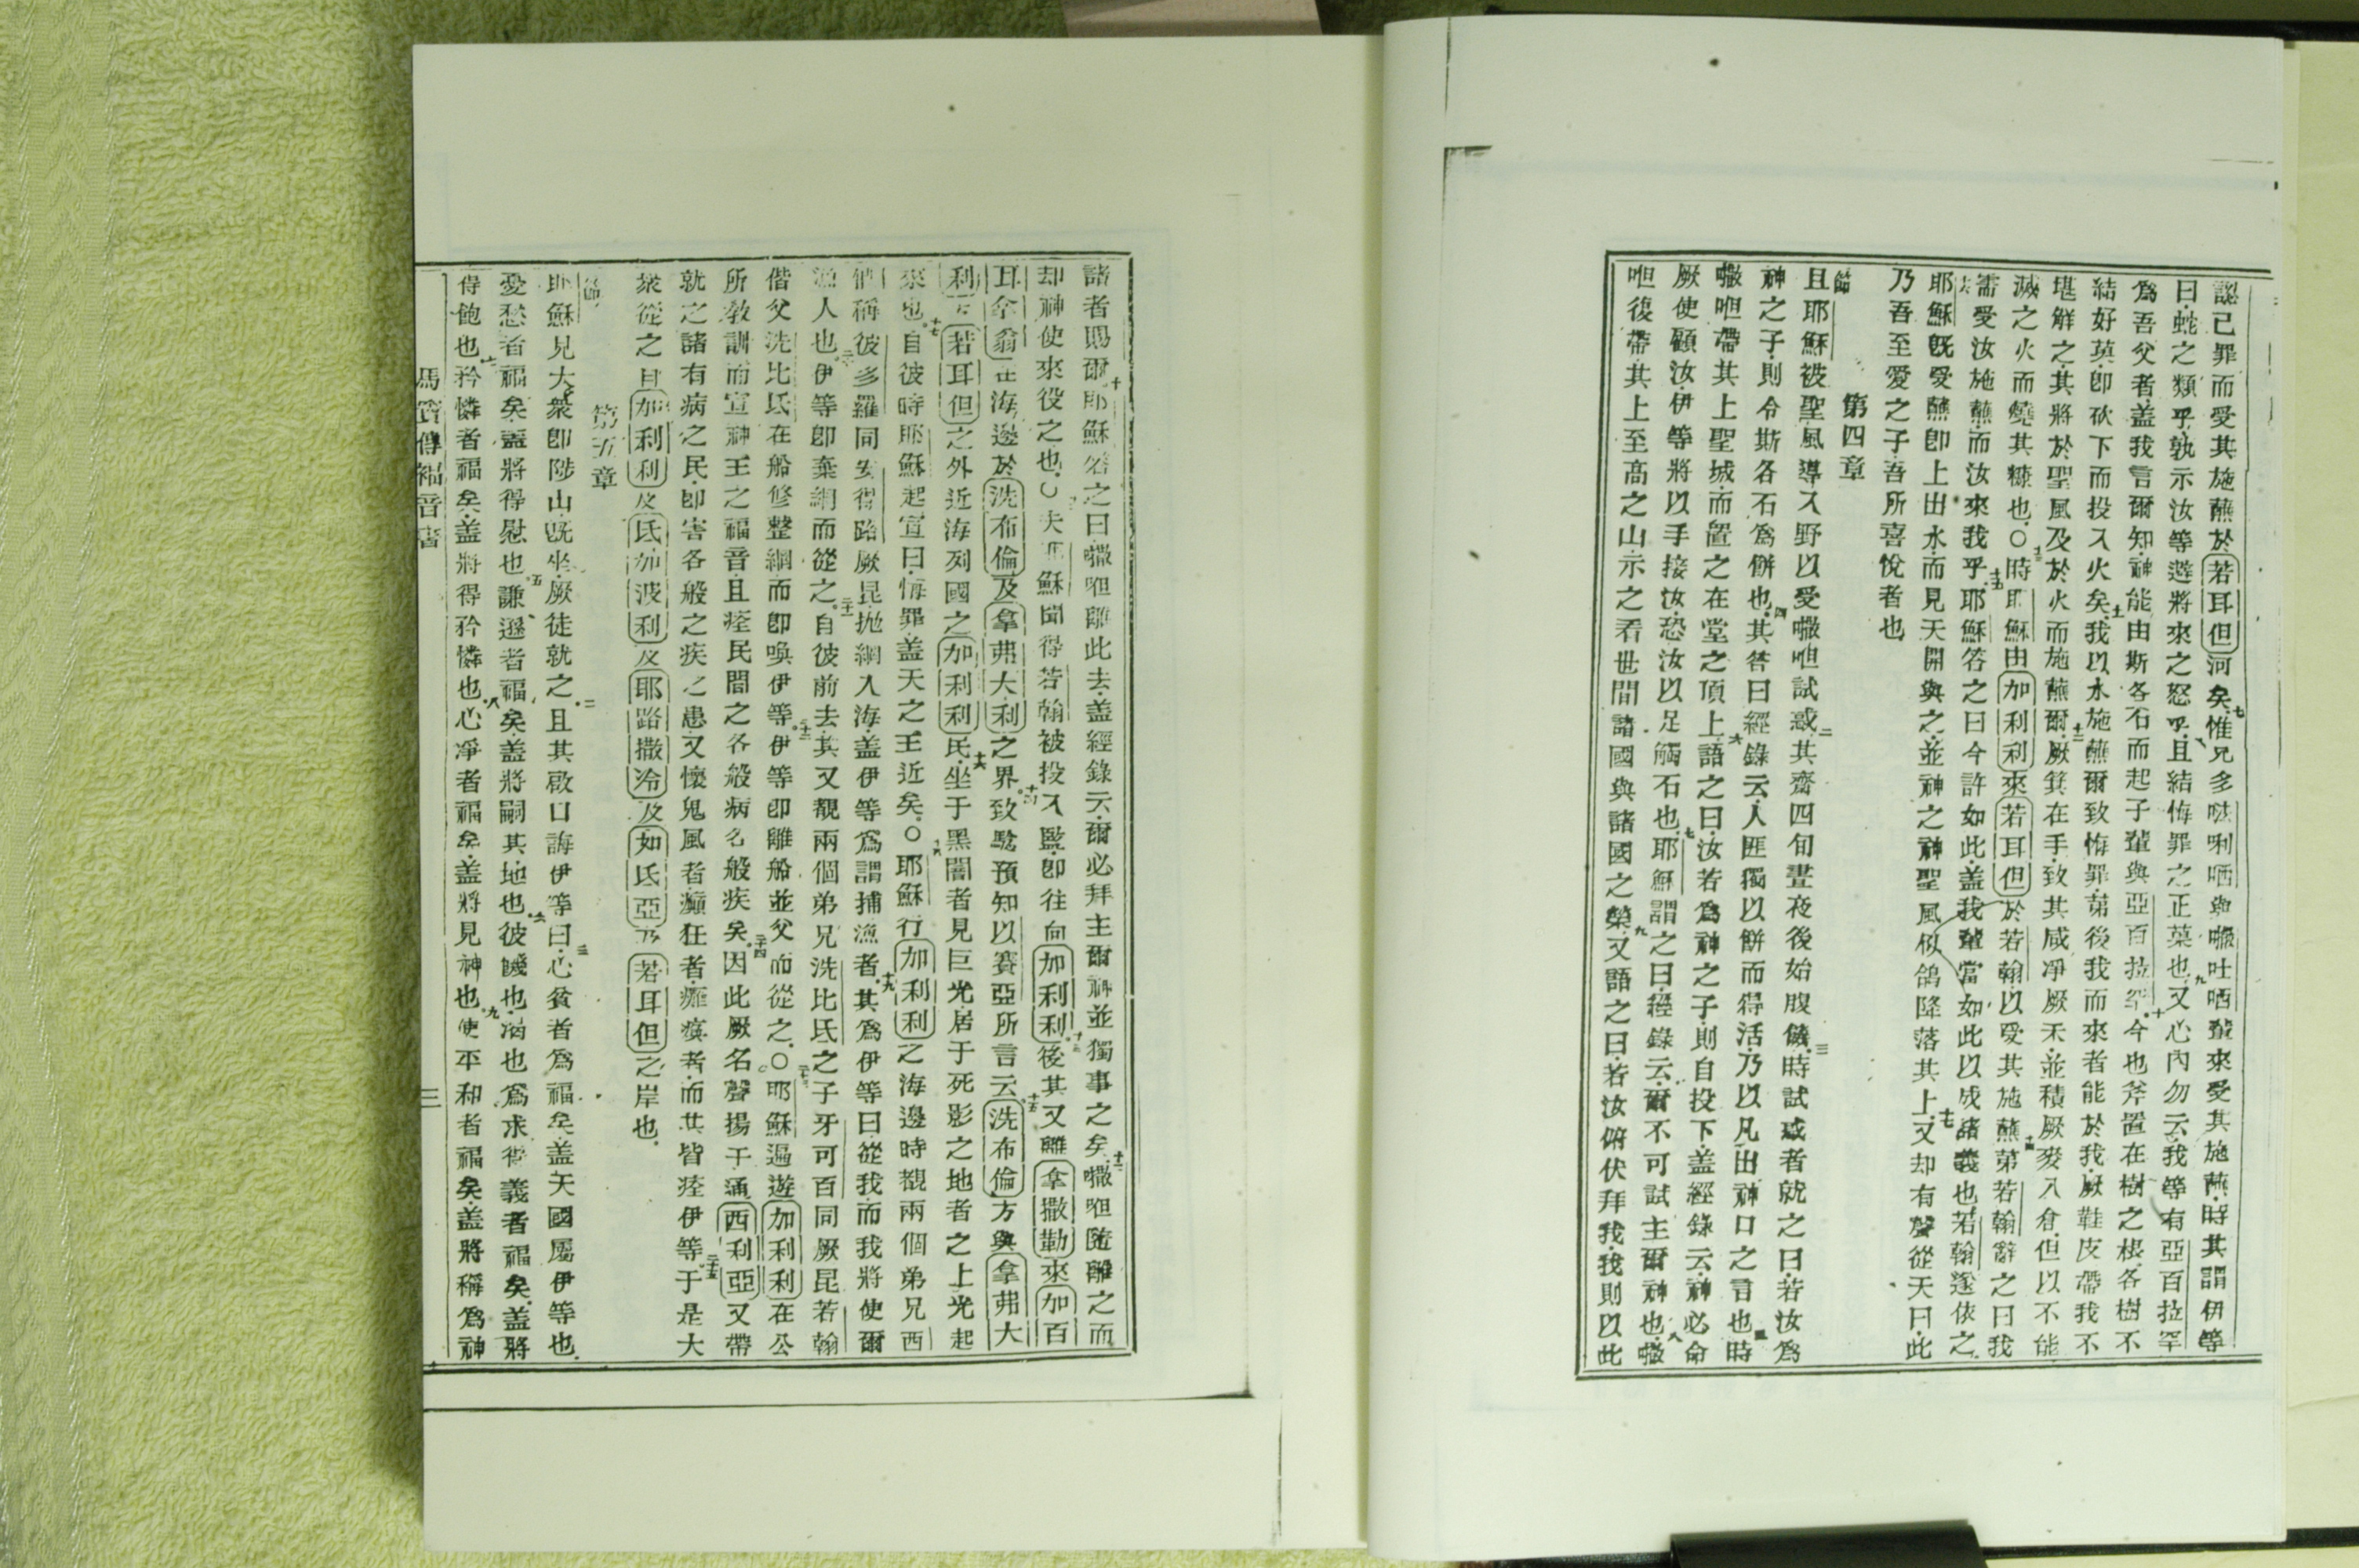 認己罪而受其施蘸於若耳但河矣七惟見多𠵽唎哂與囖吐哂輩來受其施蘸時其謂伊等
曰蛇之類乎孰示汝等避將來之怒乎八且結悔罪之正菓也九又心內勿云我等有亞百拉罕
為吾父者蓋我言爾知神能由斯各石而起子輩與亞百拉罕十今也斧置在樹之根各樹不
結好菓即砍下而投入火矣十一我以水施蘸爾致悔罪第後我而來者能於我厥鞋皮帶我不
堪解之其將於聖風及於火而施蘸爾十二厥箕在手致其咸凈厥禾並積厥麥入倉但以不能
滅之火而燒其糠也○十三時耶穌由加利利來若耳但於若翰以受其施蘸十四第若翰辭之曰我
需受汝施蘸而汝來我乎十五耶穌答之曰今許如此蓋我輩當如此以成諸義也若翰遂依之
十六耶穌既受蘸即上出水而見天開與之並神之聖風似鴿降落其上十七又却有聲從天曰此
乃吾至愛之子吾所喜悅者也
第四章
節且耶穌被聖風導入野以受𠹌呾試惑二其齋四旬晝夜後始腹饑三時試惑者就之曰若汝為
神之子則令斯各石為餅也四其答曰經錄云人匪獨以餅而得活乃以凡出神口之言也五時
𠹌呾帶其上聖城而置之在堂之頂上六語之曰汝若為神之子則自投下蓋經錄云神必命
厥使顧汝伊等將以手接汝恐汝以足觸石也七耶穌謂之曰經錄云爾不可試主爾神也八𠹌
呾復帶其上至高之山示之看世間諸國與諸國之榮九又語之曰若汝俯伏拜我我則以此
諸者賜爾十耶穌答之曰𠹌呾離此去蓋經錄云爾必拜主爾神並獨事之矣十一𠹌呾隨離之而
却神使來役之也○夫耶穌聞得若翰被投入監即往向加利利十三後其又離拿撒勒來加百
耳拿翁在海邊於洗布倫及拿弗大利之界十四致驗預知以賽亞所言云十五洗布倫方與拿弗大
利方若耳但之外近海列國之加利利氏十六坐于黑闇者見巨光居于死影之地者之上光起
來也十七自彼時耶穌起宣曰悔罪蓋天之王近矣○十八耶穌行加利利之海邊時觀兩個弟兄西
們稱彼多羅同安得路厥昆拋網入海蓋伊等為謂捕漁者十九其為伊等曰從我而我將使爾
漁人也二十伊等即棄網而從之二十一自彼前去其又觀兩個弟兄洗比氏之子牙可百同厥昆若翰
偕父洗比氏在船修整網而即喚伊等二十二伊等即離船並父而從之○二十三耶穌遍遊加利利在公
所教訓而宣神王之福音且痊民間之各般病各般疾矣二十四因此厥名聲揚于通西利亞又帶
就之諸有病之民即害各般之疾之患又懷鬼風者癲狂者癱瘓者而其皆痊伊等二十五于是大
衆從之自加利利及氏加波利及耶路撒冷及如氏亞乃若耳但之岸也
第五章
節耶穌見大衆即陟山既坐厥徒就之二且其啟口誨伊等曰三心貧者為福矣蓋天國屬伊等也
愛愁者福矣蓋將得慰也五謙遜者福矣蓋將嗣其地也六彼饑也渴也為求得義者福矣蓋將
得飽也七矜憐者福矣蓋將得矜憐也八心凈者福矣蓋將見神也九使平和者福矣蓋將稱為神
馬寶傳福音書 三